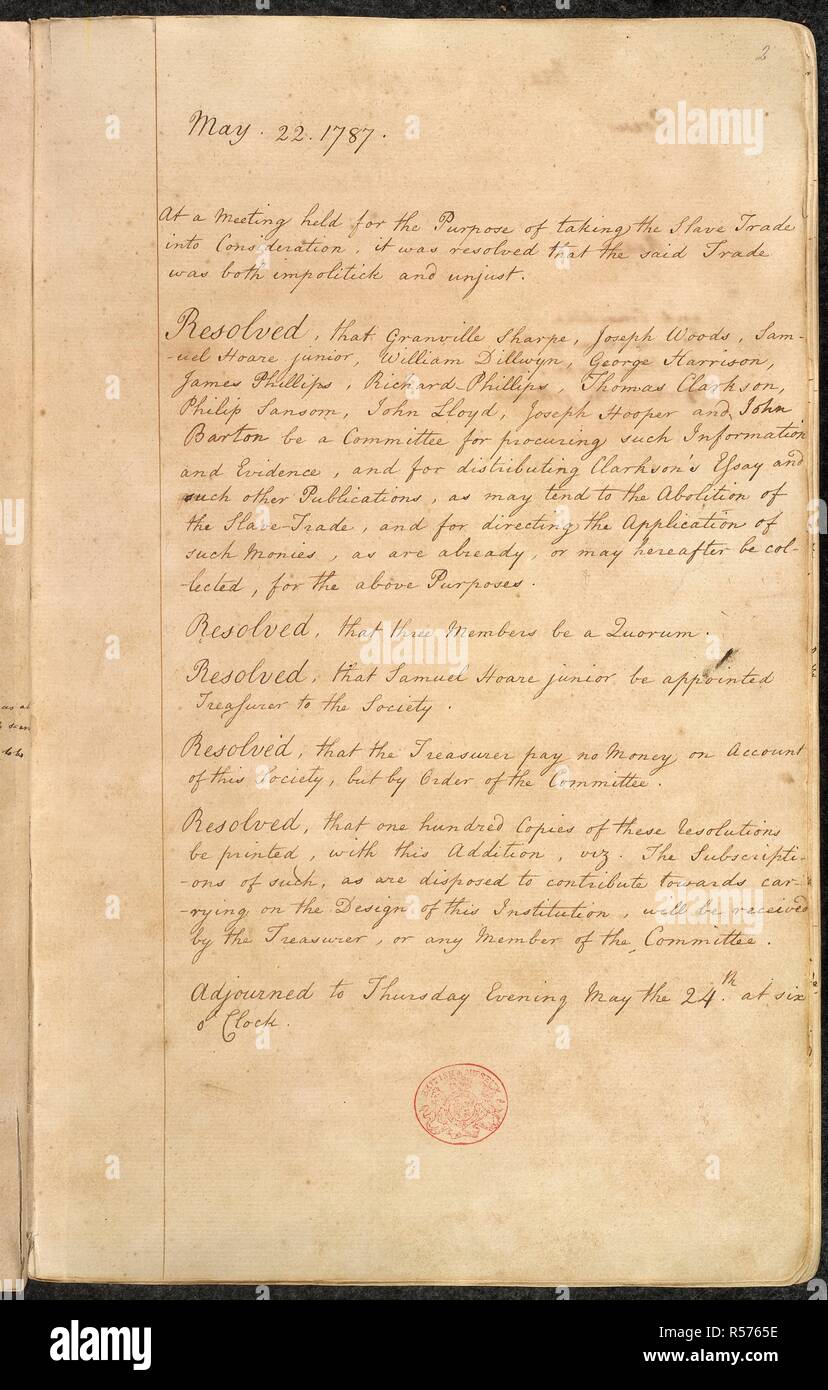 2
May. 22. 1787.
At a Meeting held for the Purpose of taking the Slave Trade
into Consideration, it was resolved that the said Trade
was both impolitick and unjust.
Resolved, that Granville Sharpe, Joseph Woods, Sam-
-uel Hoare junior, William Dillwyn, George Harrison,
James Phillips, Richard Phillips, Thomas Clarkson,
Philip Sansom, John Lloyd, Joseph Hooper and John
Barton be a Committee for procuring such Information
and Evidence, and for distributing Clarkson's Essay and
such other Publications, as may tend to the Abolition of
the Slave-Trade, and for directing the Application of
such Monies, as are already, or may hereafter be col-
-lected, for the above Purposes.
Resolved, that three Members be a Quorum.
Resolved, that Samuel Hoare junior be appointed
Treasurer to the Society.
Resolved, that the Treasurer pay no Money on Account
of this Society, but by Order of the Committee.
Resolved, that one hundred Copies of these Resolutions
be printed, with this Addition, viz. The Subscripti-
-ons of such, as are disposed to contribute towards car-
-rying on the Design of this Institution, will be received
by the Treasurer, or any Member of the Committee.
Adjourned to Thursday Evening May the 24.th at six
o'Clock.
BRITISH MUSEUM
alamy
alamy stock photo
R5765E
www.alamy.com